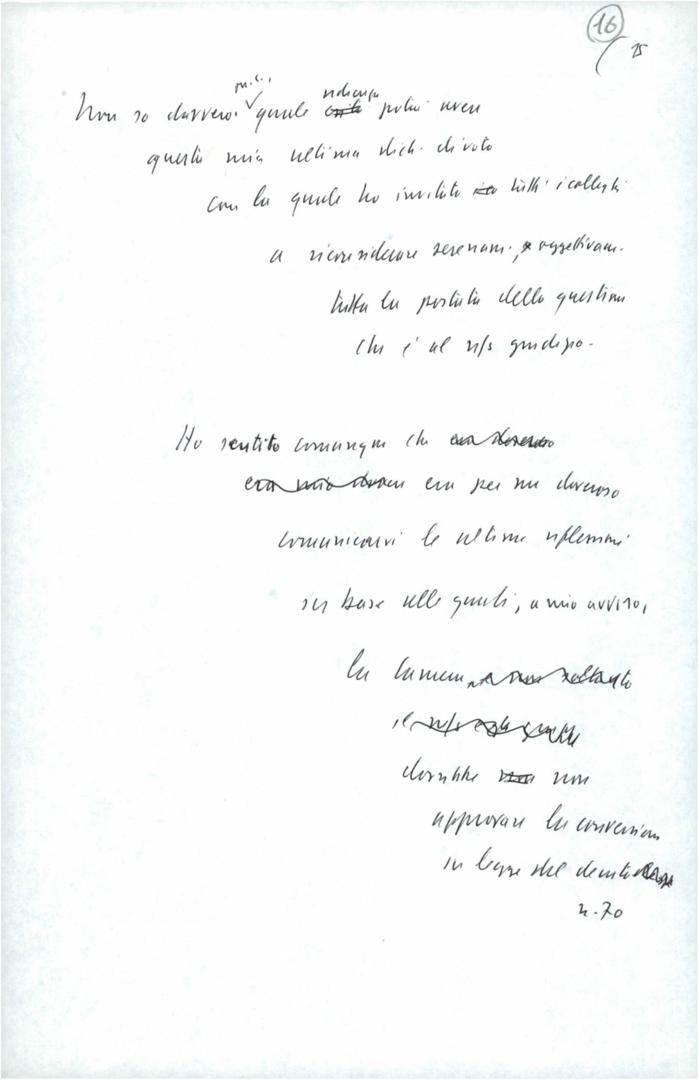 16
25
Non so davvero quale potrà avere
questa mia ultima dich. di voto
con la quale ho invitato tutti i colleghi
a riconsiderare serenam. e oggettivam.
tutta la portata della questione
che è al n/s giudizio.
Ho sentito comunque che era doveroso
era mio dovere era per me doveroso
comunicarvi le ultime riflessioni
in base alle quali, a mio avviso,
la Camera, e non soltanto
il n/s
dovrebbe non
approvare la conversione
in legge del decreto
n. 70